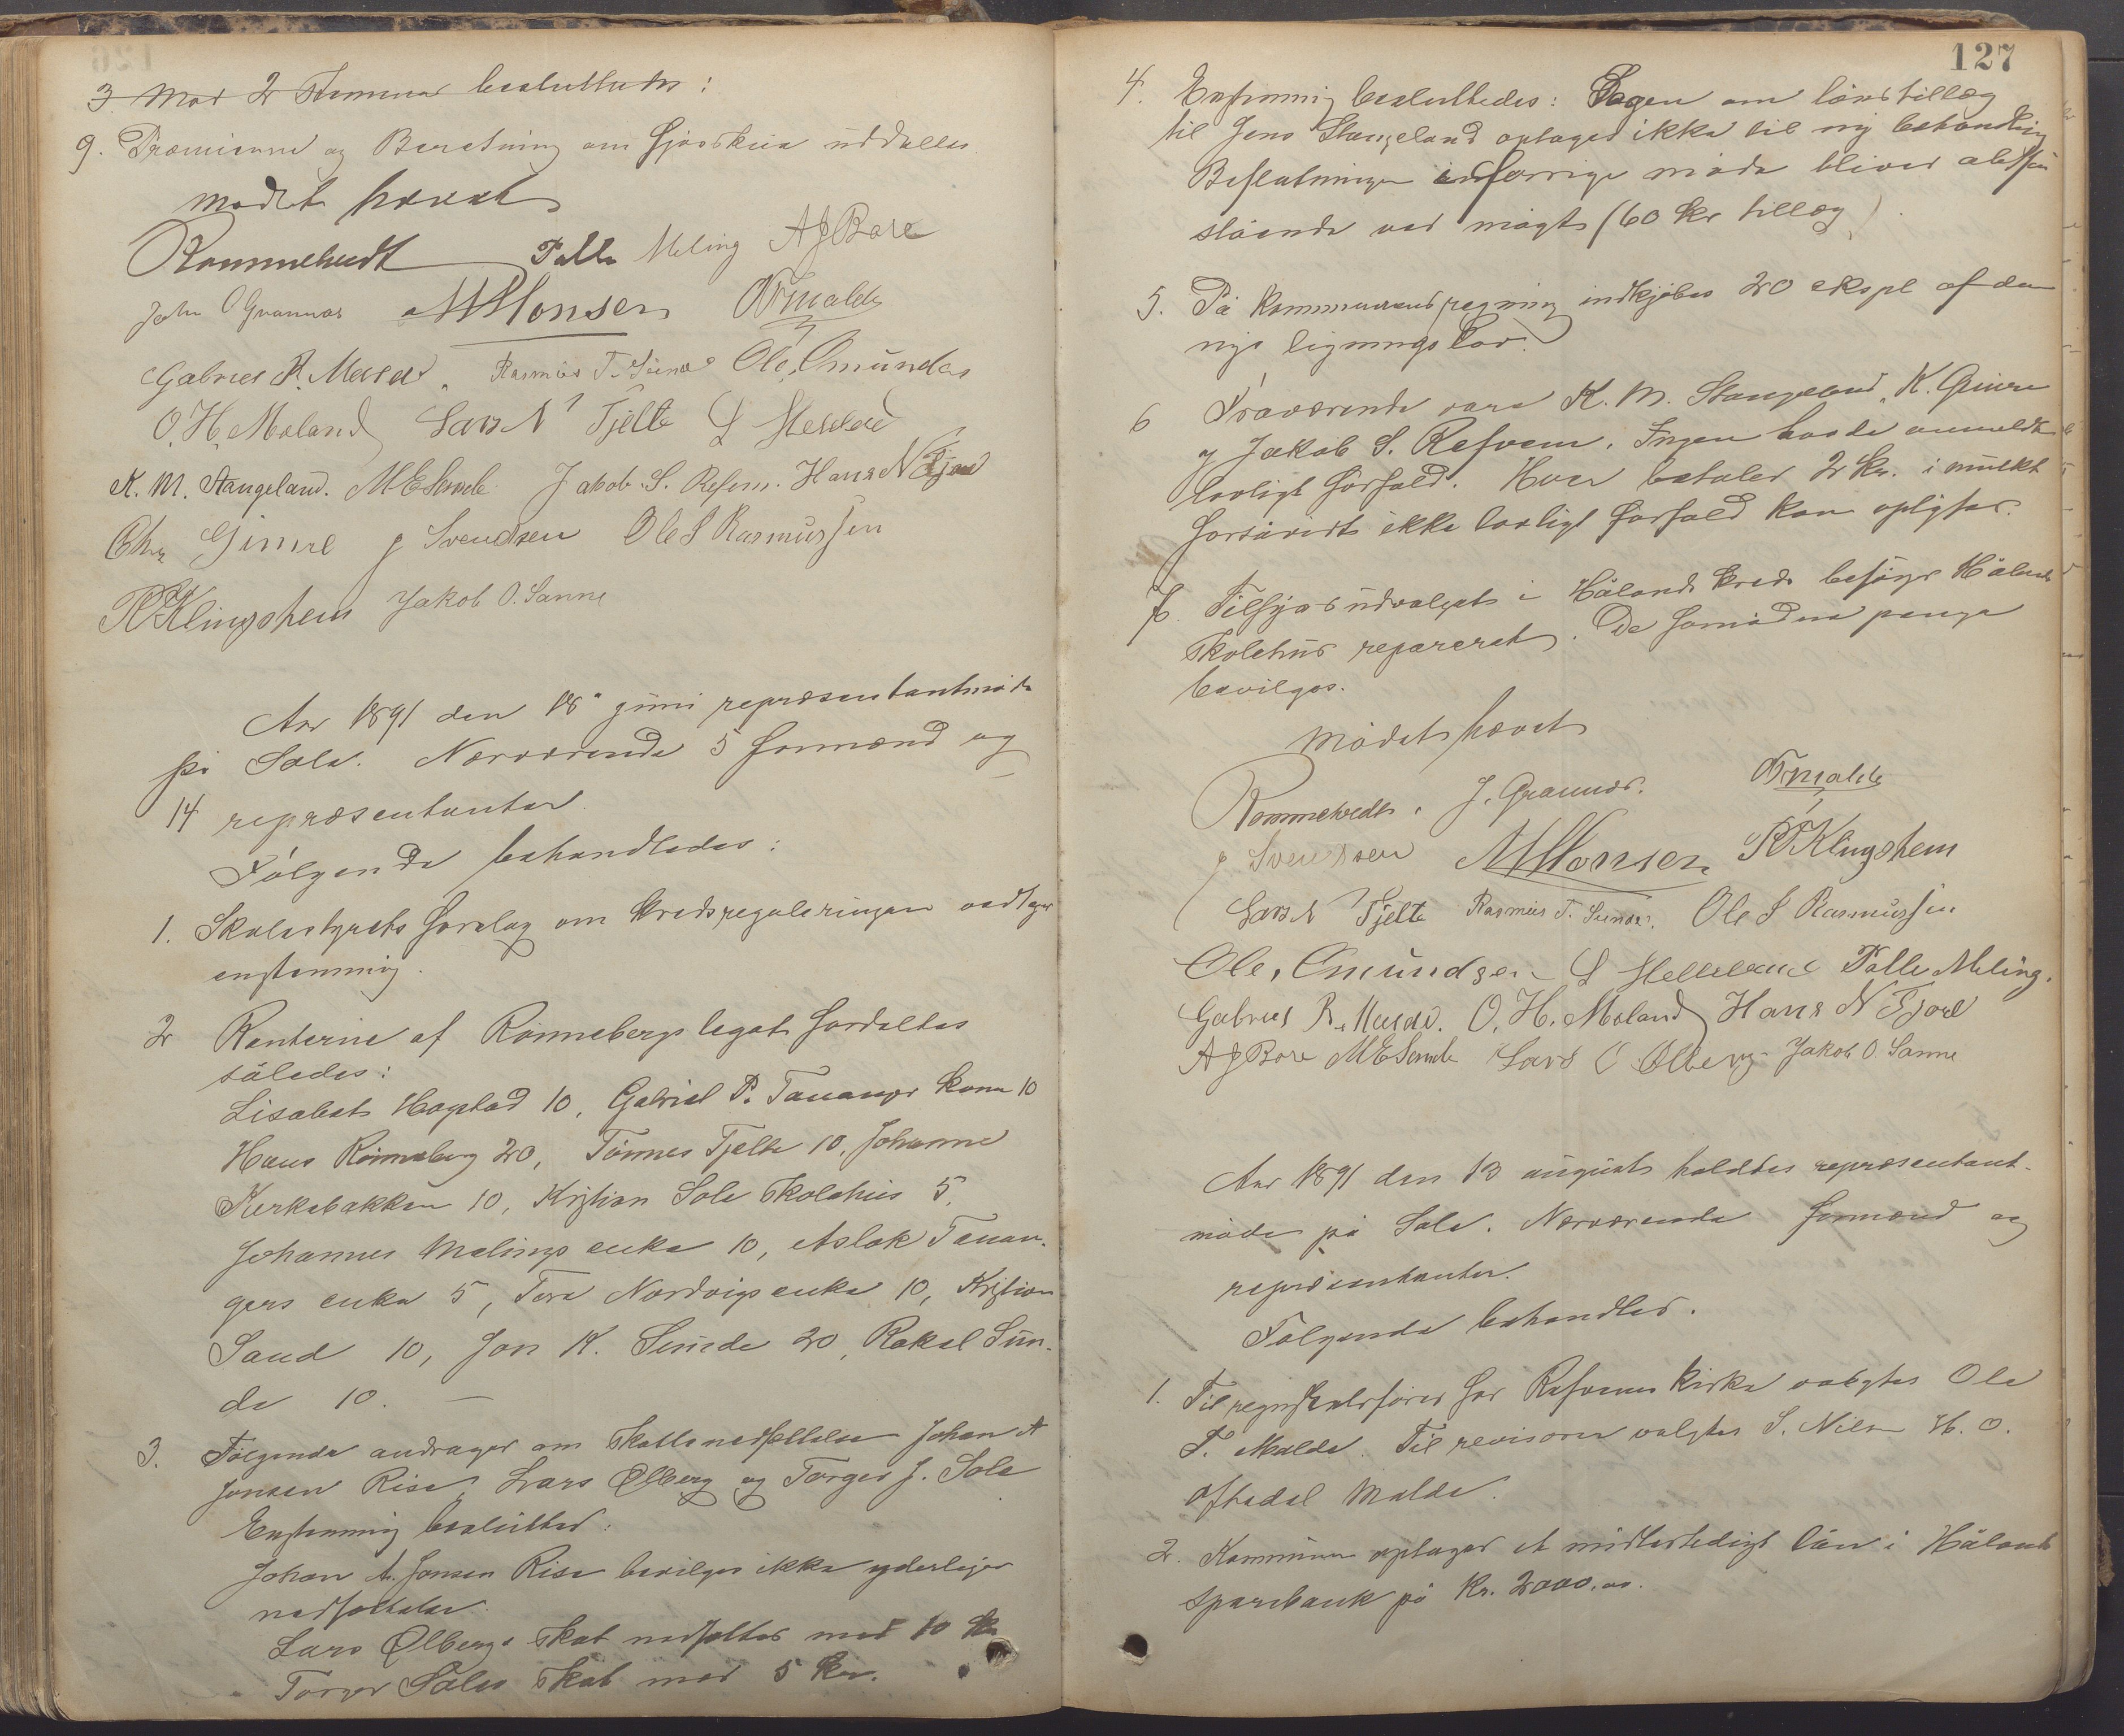 3 Mod 2 Stemmer besluttedes:
9. Præmierne og Beretning om Fjøsskuer uddelles.
Mødet hævet
Rommetvedt Tolle Meling AJBore
John O Grannes MMonsen OTmalde
Gabriel R. Meside. Rasmus T. Sunde Ole, Omundsen
O. H. Moland Lars N Tjelte L Helleland
K. M. Stangeland. MESømle Jakob. S. Refsem. Hans N Fjore
Chr Gimre J Svendsen Ole S Rasmussen
RKlingshem Jakob O. Sanne
Aar 1891 den 18de juni repræsentantmøde
på Sole. Nærværende 5 formænd og
14 repræsentanter.
Følgende behandledes:
1. Skolestyrets forslag om kredsreguleringen vedtages
enstemmig.
2 Renterne af Rønnebergs legat fordeltes
således:
Lisabet Hogstad 10, Gabriel P. Tananger kone 10
Hans Rønneberg 20, Tønnes Tjelte 10, Johanne
Kirkebakken 10, Kristian Sole Skolehus 5,
Johannes Melings enke 10, Aslak Tanan-
gers enke 5, Tore Nordvigs enke 10, Kristian
Sand 10, Jon K. Sunde 20, Rakel Sun-
de 10. —
3. Følgende andrager om skattenedsettelse Johan A
Jonsen Risa, Lars Ølberg og Torger J. Sole
Enstemmig besluttet:
Johan A. Jonsen Risa bevilges ikke yderligere
nedsættelse.
Lars Ølbergs skat nedsettes med 10 kr
Torger Soles skat med 5 kr.
127
4. Enstemmig besluttedes: Sagen om lønstillæg
til Jens Stangeland optages ikke til ny behandling
Beslutningen i forrige møde bliver altså
stående ved magt (60 kr tillæg).
5. På kommunens regning indkjøbes 20 expl af den
nye ligningslov.
6 Fraværende vare K. M. Stangeland, K. Gimre
og Jakob S. Refsem. Ingen havde anmeldt
lovligt forfald. Hver betaler 2 kr. i mulkt
forsåvidt ikke lovligt forfald kan oplyses.
7. Tilsynsudvalget i Hålands kreds besørger Hålands
skolehus repareret. De fornødne penge
bevilges.
Mødet hævet
Rommetvedt. J. Grannes. OTmalde
J Svendsen MMonsen RKlingshem
Lars N Tjelte Rasmus T. Sunde. Ole S Rasmussen
Ole, Omundsen L Helleland Tolle Meling.
Gabriel R. Meside. O. H. Moland Hans N Fjore
AJBore MESømle Lars O Ølberg Jakob O. Sanne
Aar 1891 den 13 august holdtes repræsentant-
møde på Sole. Nærværende formænd og
repræsentanter.
Følgende behandles.
1. Til regnskabsfører for Refsems kirke valgtes Ole
T. Malde. Til revisorer valgtes S. Nilsen H. O.
Oftedal Malde.
2. Kommunen optager et midlertidigt lån i Hålands
sparebank på kr. 2000.oo.